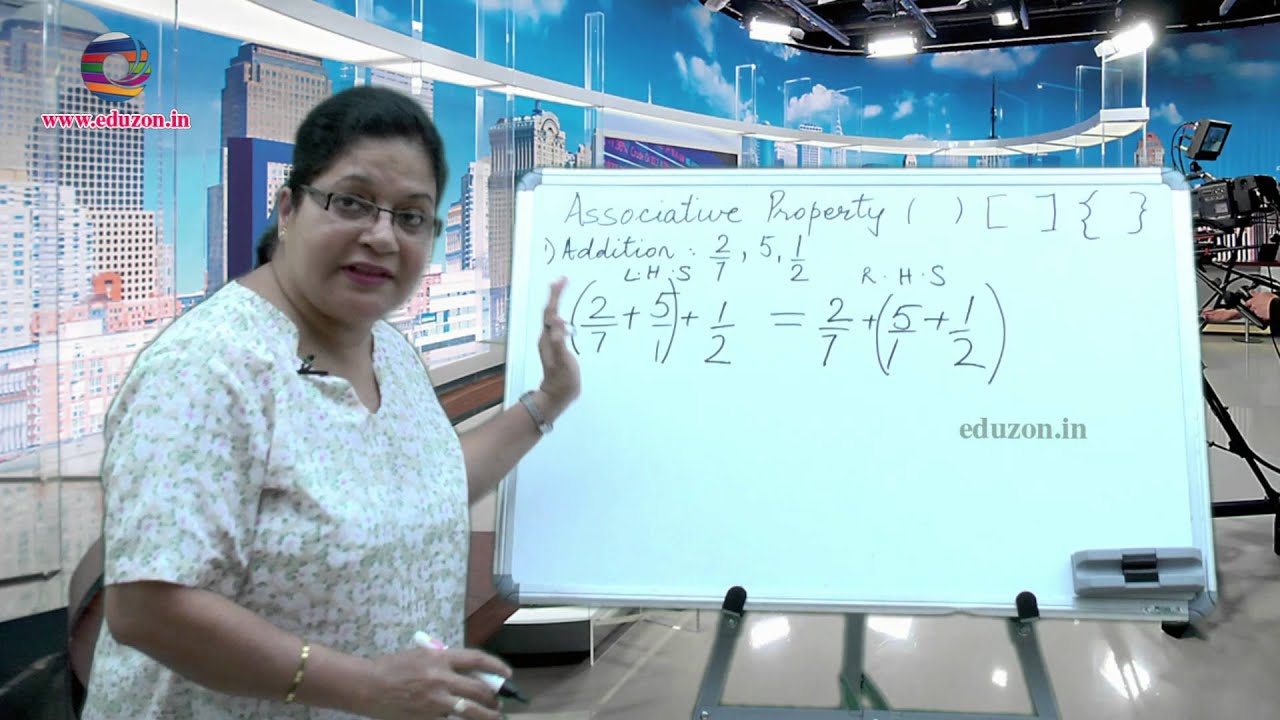 www.eduzon.in
Associative Property ( ) [ ] { }
1) Addition : 2/7, 5, 1/2
L.H.S R.H.S
(2/7 + 5/1) + 1/2 = 2/7 + (5/1 + 1/2)
eduzon.in